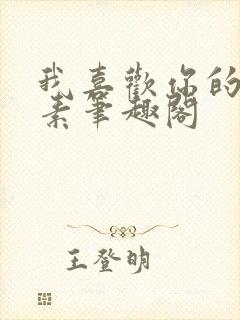 我喜歡你的
素筆趣閣
王登明